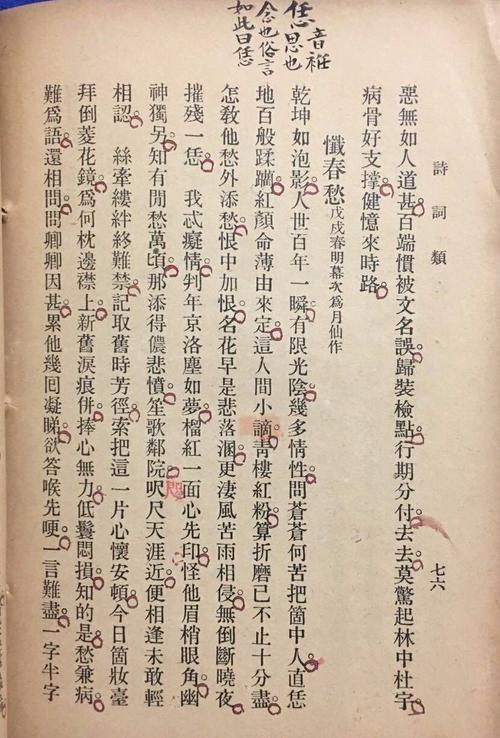 恁音袵
思也
念也俗言
如此曰恁
詩詞類
七六
惡無如人道甚百端慣被文名誤歸裝檢點行期分付去去莫驚起林中杜宇
病骨好支撐健憶來時路
懺春愁戊戌春明幕次爲月仙作
乾坤如泡影人世百年一瞬有限光陰幾多情性問蒼蒼何苦把箇中人直恁
地百般蹂躪紅顏命薄由來定這人間小謫靑樓紅粉算折磨已不止十分盡
怎敎他愁外添愁恨中加恨名花早是悲落溷更淒風苦雨相侵無倒斷曉夜
摧殘一恁　我忒癡情判年京洛塵如夢榴紅一面心先印怪他眉梢眼角幽
神獨另知有閒愁萬頃那添得儂悲憤笙歌鄰院咫尺天涯近便相逢未敢輕
相認　絲牽縷絆終難禁記取舊時芳徑索把這一片心懷安頓今日箇妝臺
拜倒菱花鏡爲何枕邊襟上新舊淚痕併捧心無力低鬟悶損知的是愁兼病
難爲語還相問問卿卿因甚累他幾囘凝睇欲答喉先哽一言難盡一字半字